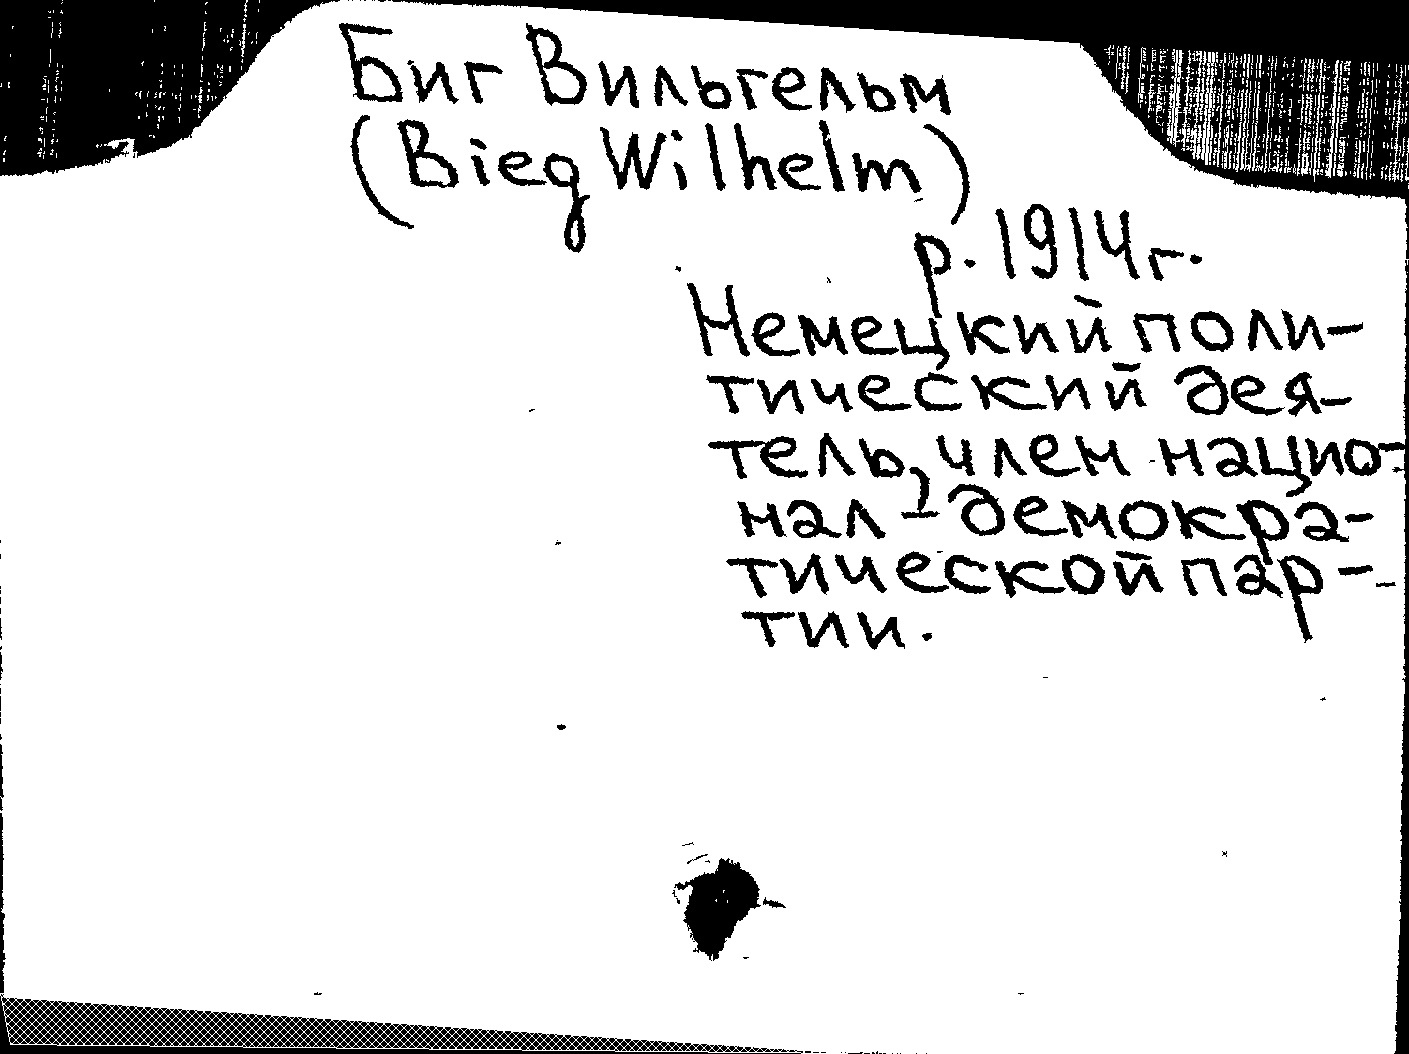 Биг Вильгельм
(Bieg Wilhelm)
р. 1914 г.
Немецкий поли-
тический дея-
тель, член нацио-
нал-демокра-
тической пар-
тии.